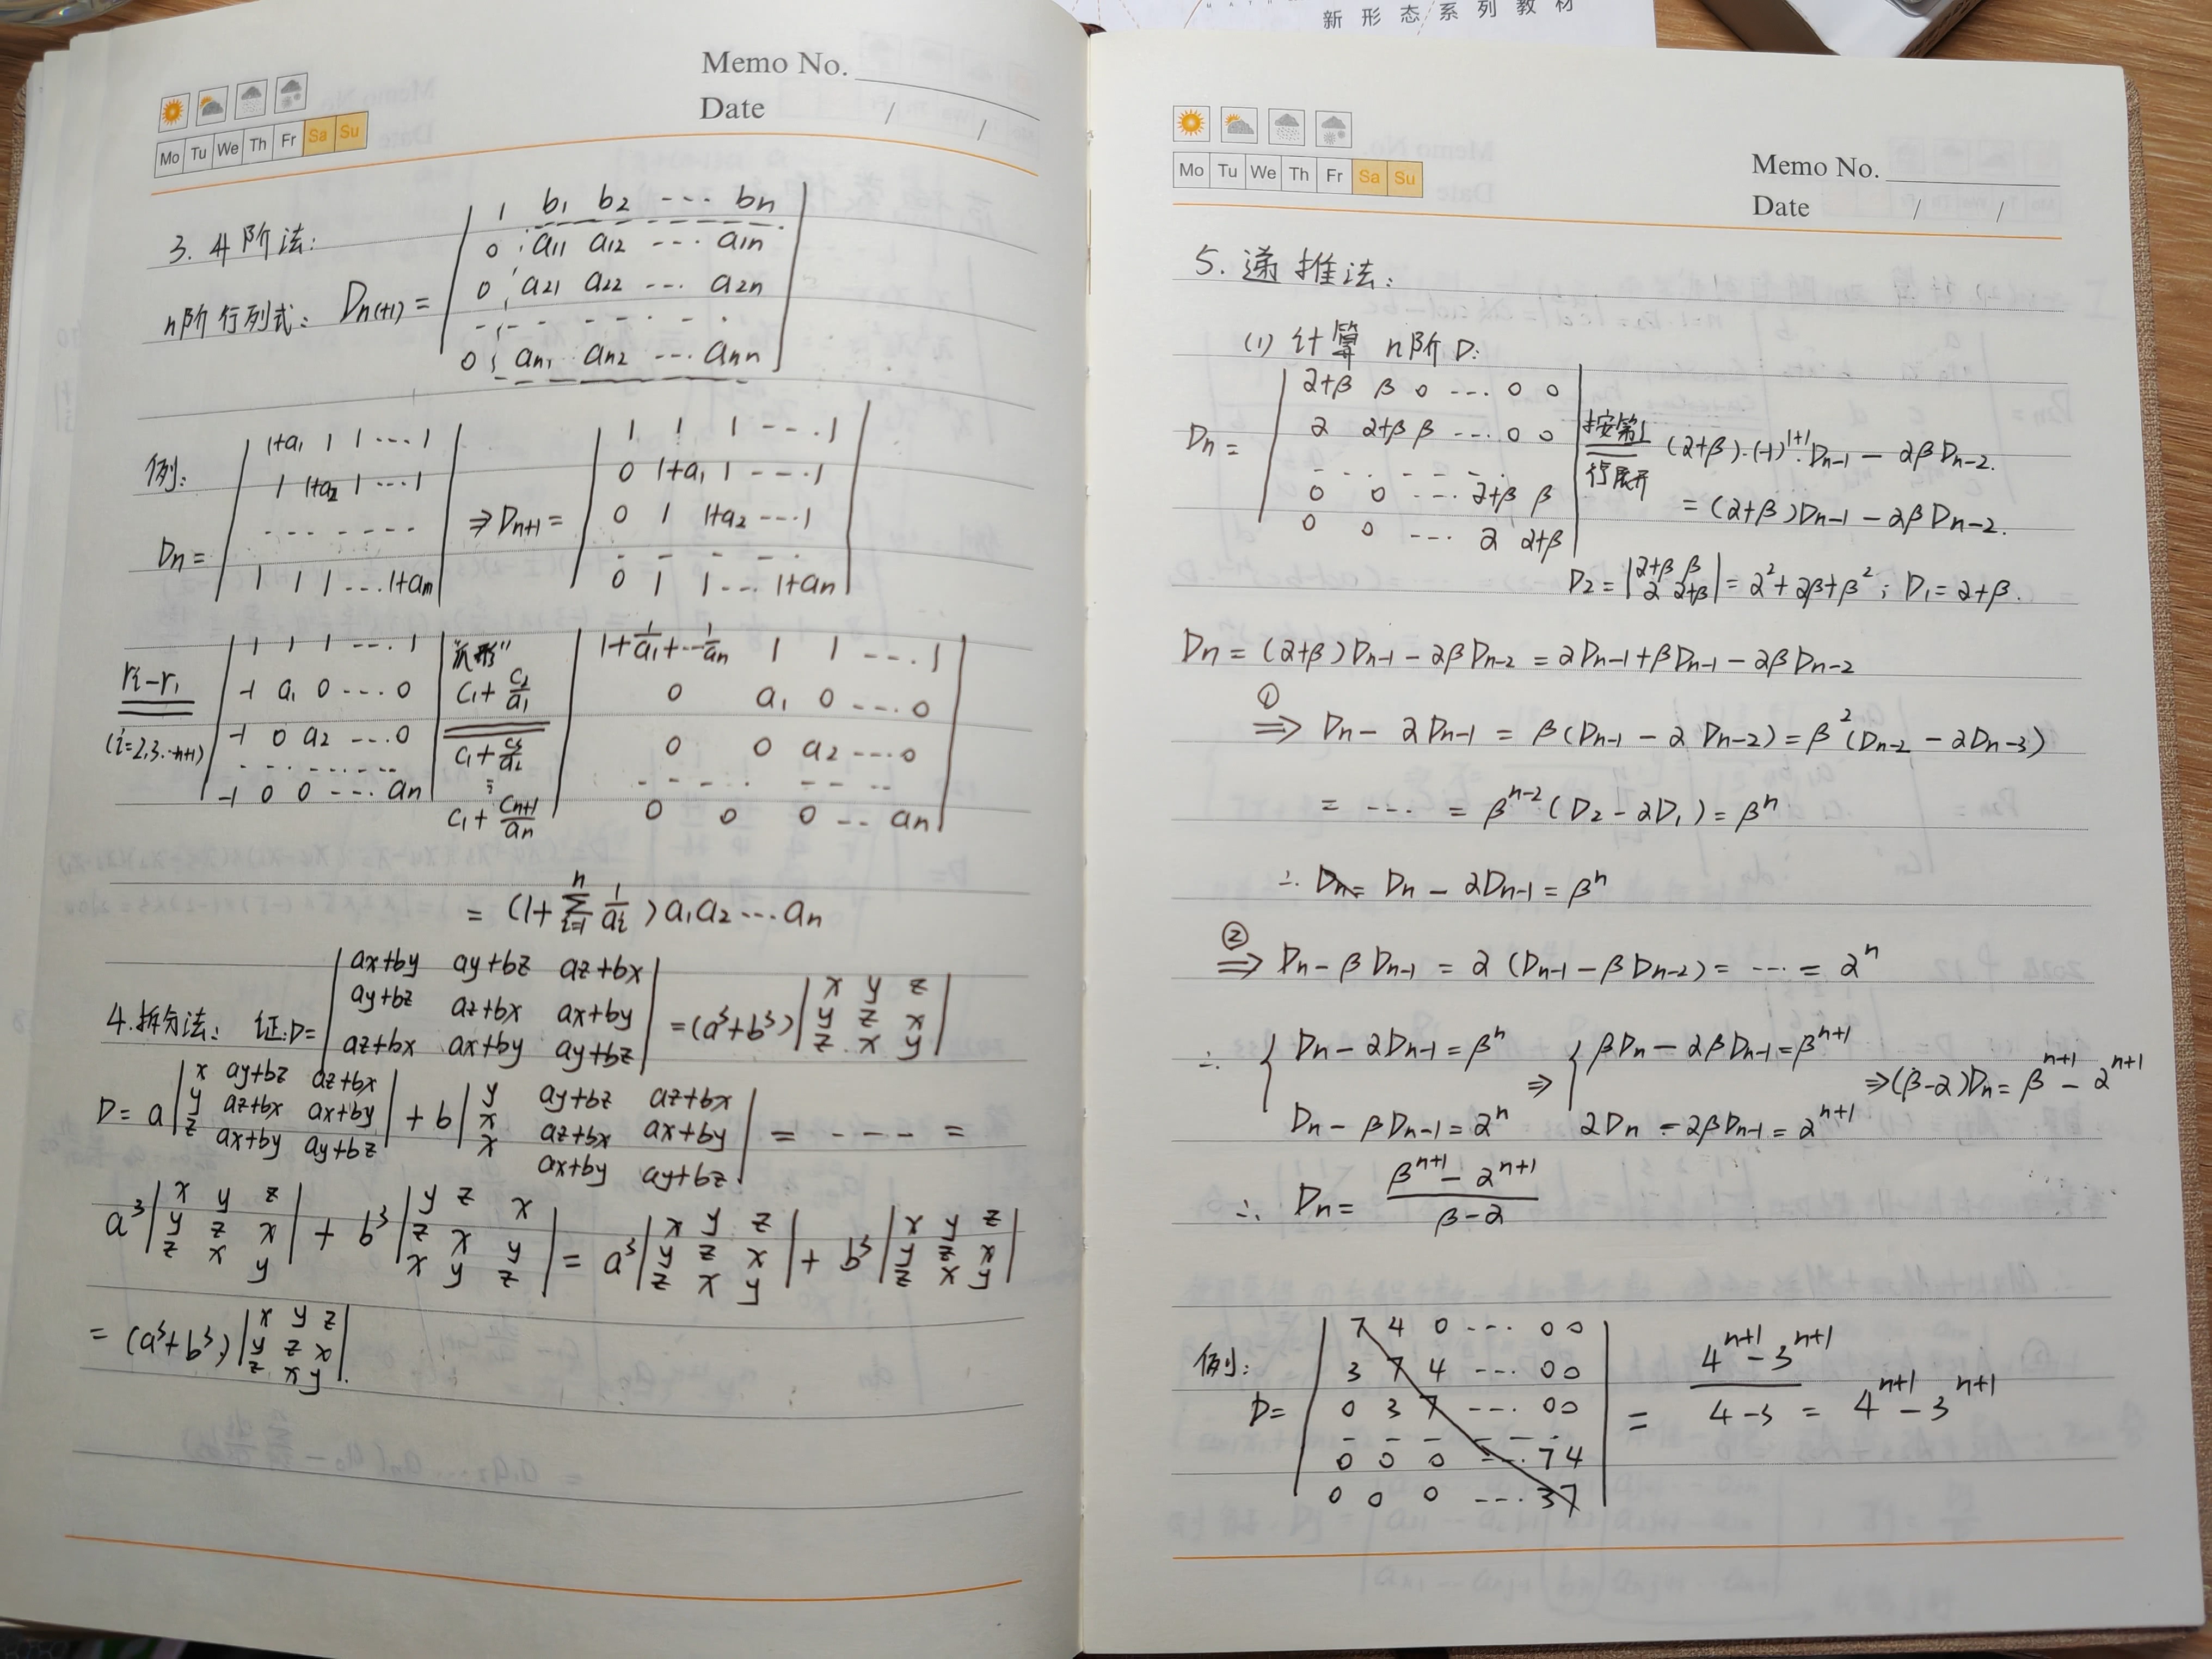 新形态系列教材
Memo No.
Date / /
Mo Tu We Th Fr Sa Su
3. 升阶法:
n阶行列式: Dn(+1) =
1 b1 b2 --- bn
0 a11 a12 --- a1n
0 a21 a22 --- a2n
- - - - - -
0 an1 an2 --- ann
例:
Dn =
1+a1 1 1 --- 1
1 1+a2 1 --- 1
- - - - - -
1 1 1 --- 1+an
⇒ Dn+1 =
1 1 1 --- 1
0 1+a1 1 --- 1
0 1 1+a2 --- 1
- - - - -
0 1 1 --- 1+an
ri-r1
(i=2,3.--n+1)
1 1 1 --- 1
-1 a1 0 --- 0
-1 0 a2 --- 0
- - - - - -
-1 0 0 --- an
"爪形"
c1 + c2/a1
c1 + c3/a2
⋮
c1 + cn+1/an
1+1/a1+--1/an 1 1 --- 1
0 a1 0 --- 0
0 0 a2 --- 0
- - - - - -
0 0 0 -- an
= (1+ Σ(i=1→n) 1/ai ) a1a2 --- an
4.拆分法: 证:D=
ax+by ay+bz az+bx
ay+bz az+bx ax+by
az+bx ax+by ay+bz
= (a³+b³)
x y z
y z x
z x y
D= a
x ay+bz az+bx
y az+bx ax+by
z ax+by ay+bz
+ b
y ay+bz az+bx
x az+bx ax+by
x ax+by ay+bz
= - - - - =
a³ |x y z; y z x; z x y| + b³ |y z x; z x y; x y z| = a³ |x y z; y z x; z x y| + b³ |x y z; y z x; z x y|
= (a³+b³) |x y z; y z x; z x y|.
Mo Tu We Th Fr Sa Su
Memo No.
Date / /
5. 递推法:
(1) 计算 n阶 D:
Dn =
α+β β 0 --- 0 0
α α+β β --- 0 0
- - - - - -
0 0 --- α+β β
0 0 --- α α+β
按第1行展开 (α+β)·(-1)^{1+1}·Dn-1 - αβDn-2.
= (α+β)Dn-1 - αβDn-2.
D2 = |α+β β; α α+β| = α²+αβ+β²; D1 = α+β.
Dn = (α+β)Dn-1 - αβDn-2 = αDn-1 + βDn-1 - αβDn-2
①⇒ Dn - αDn-1 = β(Dn-1 - αDn-2) = β²(Dn-2 - αDn-3)
= --- = β^{n-2}(D2 - αD1) = β^n
∴ Dn= Dn - αDn-1 = β^n
②⇒ Dn - βDn-1 = α(Dn-1 - βDn-2) = --- = α^n
∴ { Dn - αDn-1 = β^n ⇒ { βDn - αβDn-1 = β^{n+1} ⇒ (β-α)Dn = β^{n+1} - α^{n+1}
Dn - βDn-1 = α^n αDn - αβDn-1 = α^{n+1}
∴ Dn = (β^{n+1} - α^{n+1})/(β-α)
例:
D=
7 4 0 --- 0 0
3 7 4 --- 0 0
0 3 7 --- 0 0
- - - - - -
0 0 0 --- 7 4
0 0 0 --- 3 7
= (4^{n+1} - 3^{n+1})/(4-3) = 4^{n+1} - 3^{n+1}